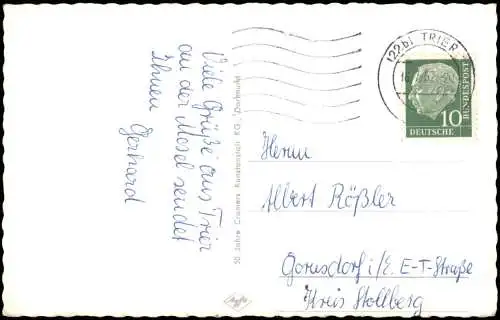 Viele Grüße aus Trier
an der Mosel sendet
Ihnen
Gerhard
50 Jahre Cramers Kunstanstalt KG., Dortmund
(22b) TRIER
DEUTSCHE
BUNDESPOST
10
Herrn
Albert Rößler
Gornsdorf i/E. E-T-Straße
Kreis Stollberg
Agfa